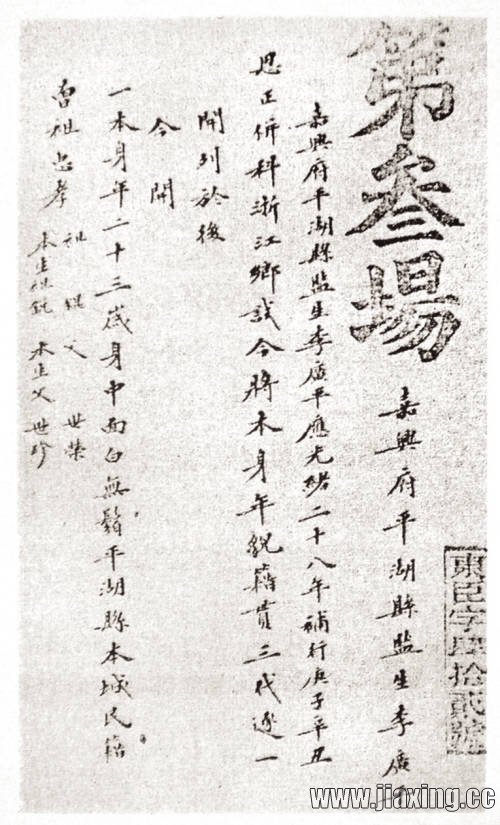 東臣字肆拾貳號
第叁場
嘉興府平湖縣監生李廣
嘉興府平湖縣監生李廣平應光緒二十八年補行庚子辛丑
恩正併科浙江鄉試今將本身年貌籍貫三代逐一
開列於後
今開
一本身年二十三歲身中面白無鬚平湖縣本城民籍
曾祖忠孝 祖 父 世榮
本生祖 本生父 世珍
www.jiaxing.cc